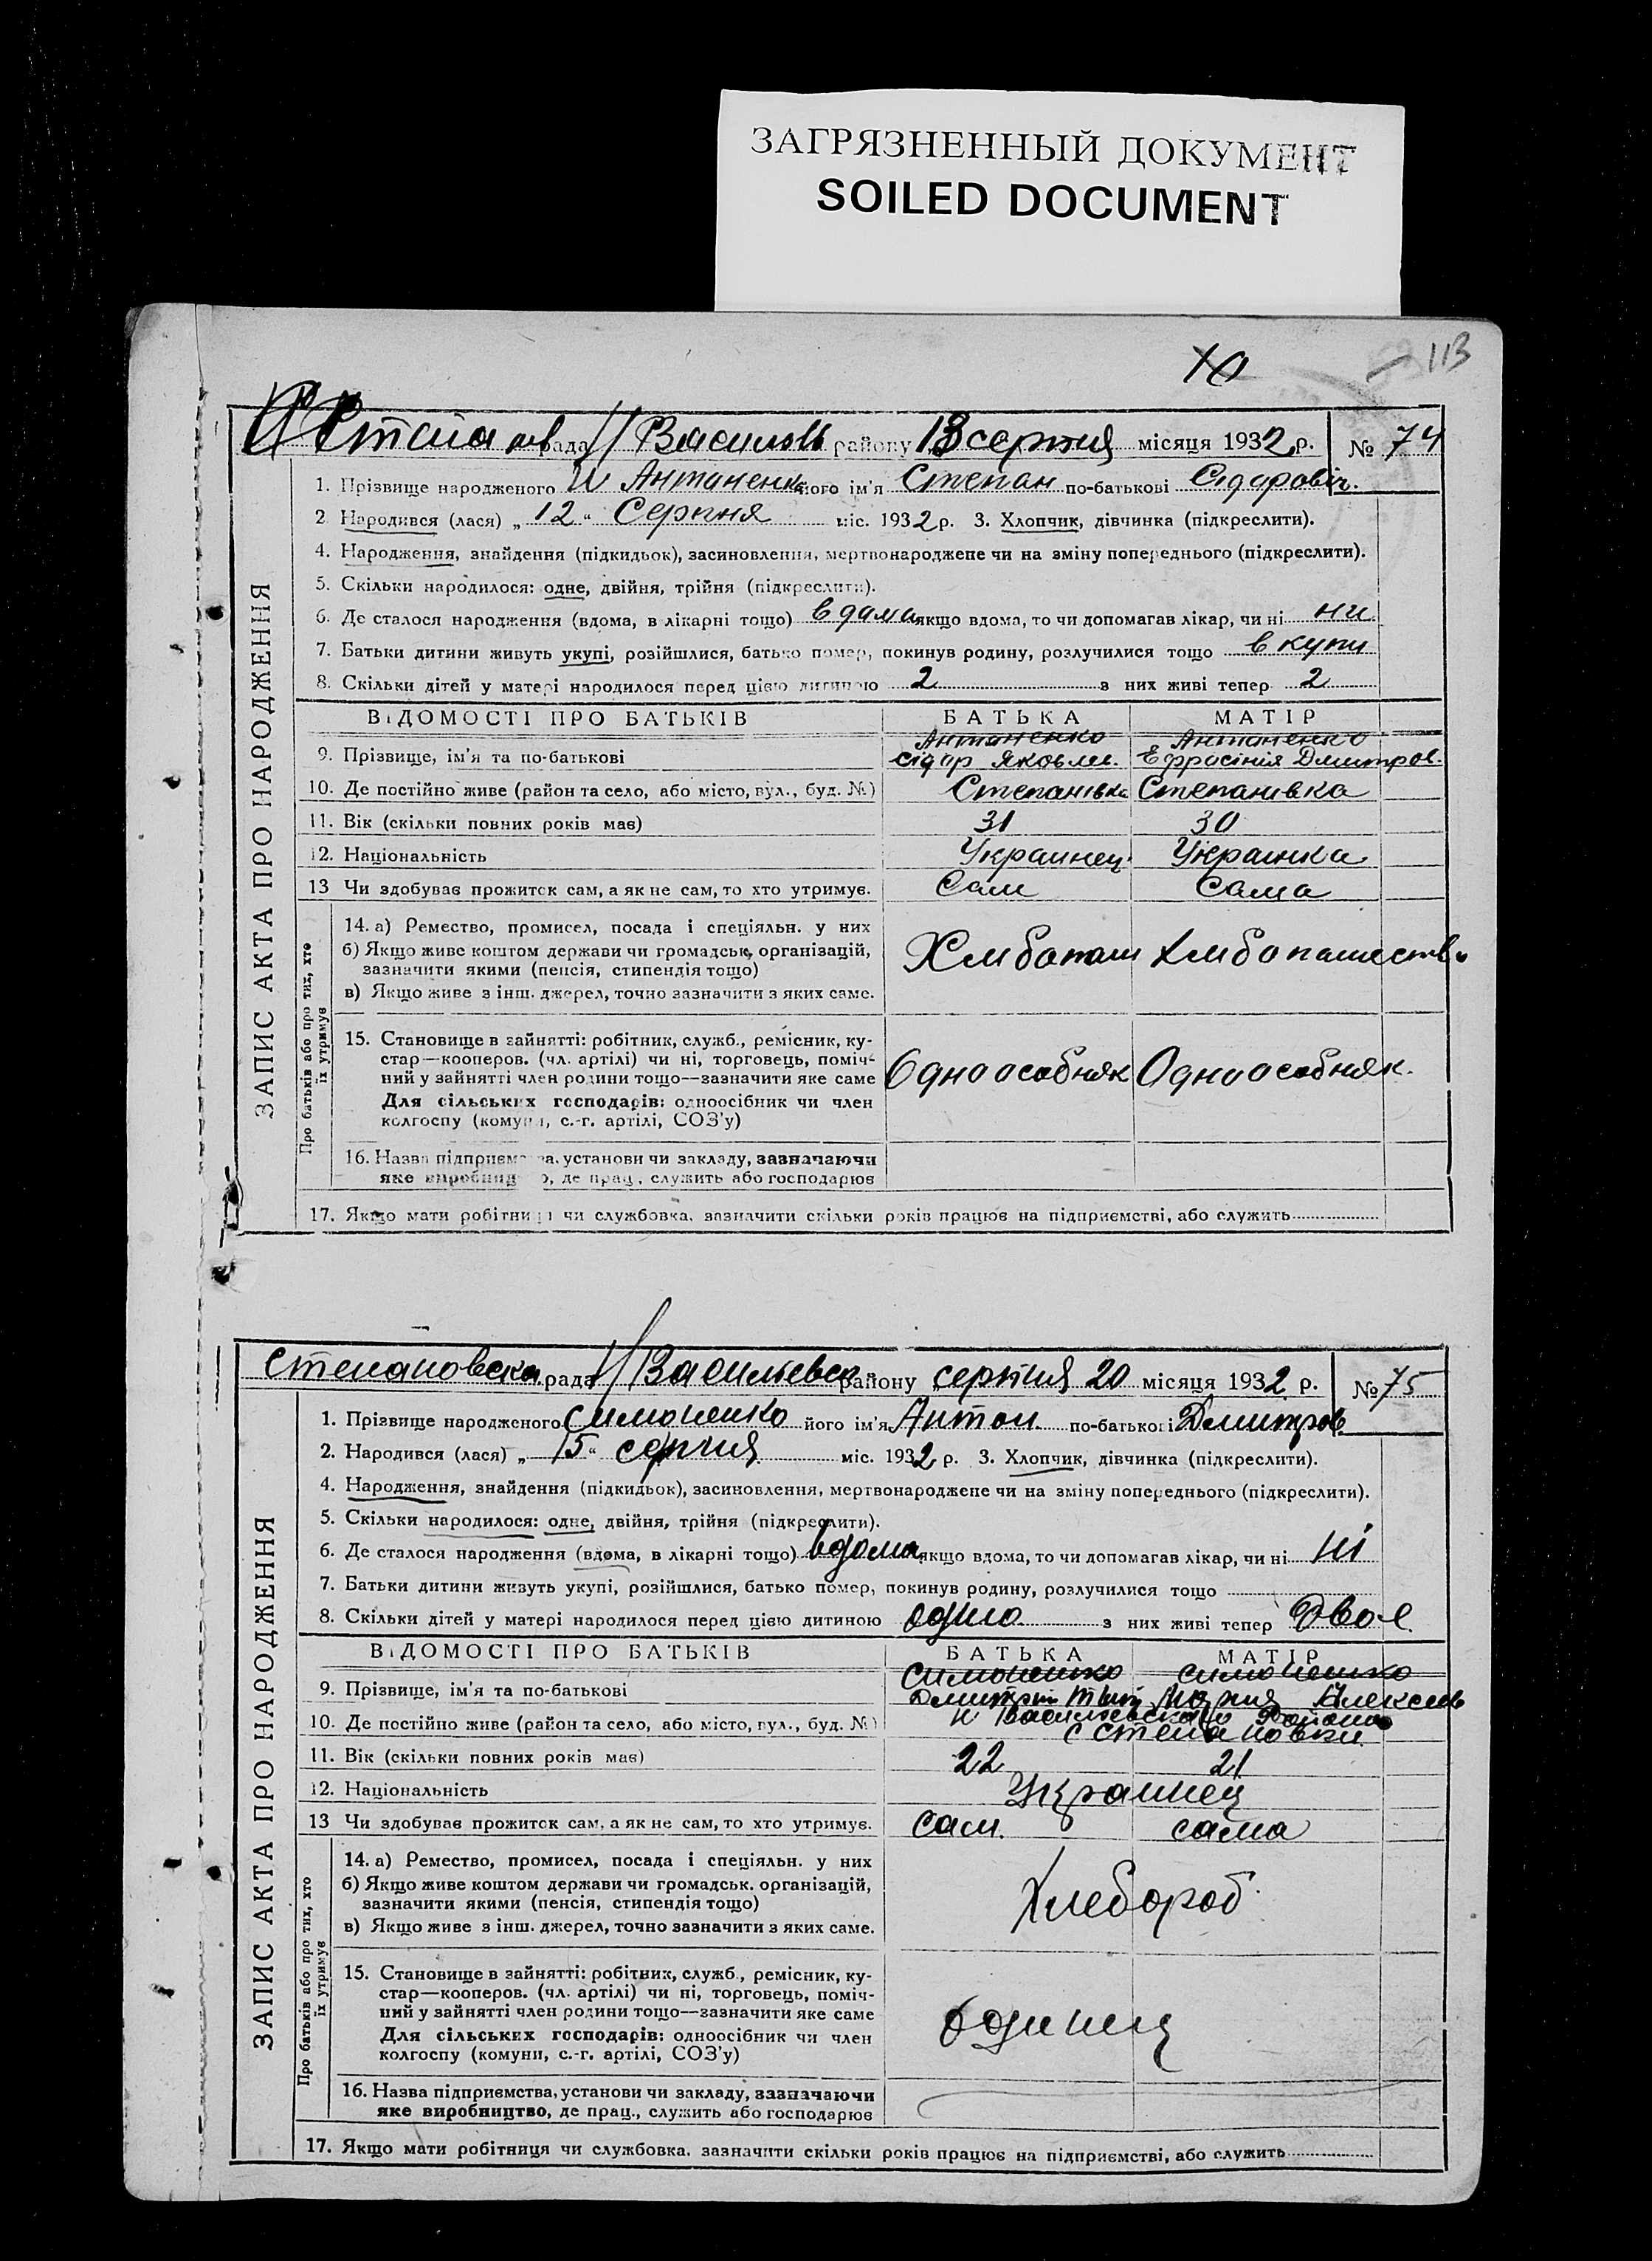 ЗАГРЯЗНЕННЫЙ ДОКУМЕНТ
SOILED DOCUMENT
113
рада Н Василь району 13 серпня місяця 1932 р. № 74
ЗАПИС АКТА ПРО НАРОДЖЕННЯ
1. Прізвище народженого Антаненко його ім'я Степан по-батькові Сідаровіч.
2 Народився (лася) „12“ Серпня міс. 1932 р. 3. Хлопчик, дівчинка (підкреслити).
4. Народження, знайдення (підкидьок), засиновлення, мертвонароджене чи на зміну попереднього (підкреслити).
5. Скільки народилося: одне, двійня, трійня (підкреслити).
6. Де сталося народження (вдома, в лікарні тощо) в дама якщо вдома, то чи допомагав лікар, чи ні ни
7. Батьки дитини живуть укупі, розійшлися, батько помер, покинув родину, розлучилися тощо в купи
8. Скільки дітей у матері народилося перед цією дитиною 2 з них живі тепер 2
ВІДОМОСТІ ПРО БАТЬКІВ БАТЬКА МАТІР
Антаненко Антаненко
9. Прізвище, ім'я та по-батькові Сідар Яковлев. Ефросінія Дмитров.
10. Де постійно живе (район та село, або місто, вул., буд. №) Степанівка Степанівка
11. Вік (скільки повних років має) 31 30
12. Національність Украинец Украинка
13 Чи здобуває прожиток сам, а як не сам, то хто утримує. Сам Сама
Про батьків або про тих, хто їх утримує
14. а) Ремество, промисел, посада і спеціяльн. у них
б) Якщо живе коштом держави чи громадськ. організацій,
зазначити якими (пенсія, стипендія тощо)
в) Якщо живе з інш. джерел, точно зазначити з яких саме.
15. Становище в зайнятті: робітник, служб., ремісник, ку-
стар—кооперов. (чл. артілі) чи ні, торговець, поміч-
ний у зайнятті член родини тощо—зазначити яке саме Одноособняк Одноособняк.
Для сільських господарів: одноосібник чи член
колгоспу (комуни, с.-г. артілі, СОЗ'у)
16. Назва підприємства, установи чи закладу, зазначаючи
яке виробництво, де прац., служить або господарює
17. Якщо мати робітниця чи службовка, зазначити скільки років працює на підприємстві, або служить
Степановска рада Н Васильевск району серпня 20 місяця 1932 р. № 75
ЗАПИС АКТА ПРО НАРОДЖЕННЯ
1. Прізвище народженого Симоненко його ім'я Антон по-батькові Дмитров.
2. Народився (лася) „15“ серпня міс. 1932 р. 3. Хлопчик, дівчинка (підкреслити).
4. Народження, знайдення (підкидьок), засиновлення, мертвонароджене чи на зміну попереднього (підкреслити).
5. Скільки народилося: одне, двійня, трійня (підкреслити).
6. Де сталося народження (вдома, в лікарні тощо) вдома якщо вдома, то чи допомагав лікар, чи ні ні
7. Батьки дитини живуть укупі, розійшлися, батько помер, покинув родину, розлучилися тощо
8. Скільки дітей у матері народилося перед цією дитиною одно з них живі тепер двое
ВІДОМОСТІ ПРО БАТЬКІВ БАТЬКА МАТІР
Симоненко Симоненко
9. Прізвище, ім'я та по-батькові Дмитрий Мария Алексеев
10. Де постійно живе (район та село, або місто, вул., буд. №) Н Васильевскаго Района
с Степановки
11. Вік (скільки повних років має) 22 21
12. Національність Украинец
13 Чи здобуває прожиток сам, а як не сам, то хто утримує. сам. сама
Про батьків або про тих, хто їх утримує
14. а) Ремество, промисел, посада і спеціяльн. у них
б) Якщо живе коштом держави чи громадськ. організацій, Хлебороб
зазначити якими (пенсія, стипендія тощо)
в) Якщо живе з інш. джерел, точно зазначити з яких саме.
15. Становище в зайнятті: робітник, служб., ремісник, ку-
стар—кооперов. (чл. артілі) чи ні, торговець, поміч-
ний у зайнятті член родини тощо—зазначити яке саме
Для сільських господарів: одноосібник чи член
колгоспу (комуни, с.-г. артілі, СОЗ'у)
16. Назва підприємства, установи чи закладу, зазначаючи
яке виробництво, де прац., служить або господарює
17. Якщо мати робітниця чи службовка, зазначити скільки років працює на підприємстві, або служить